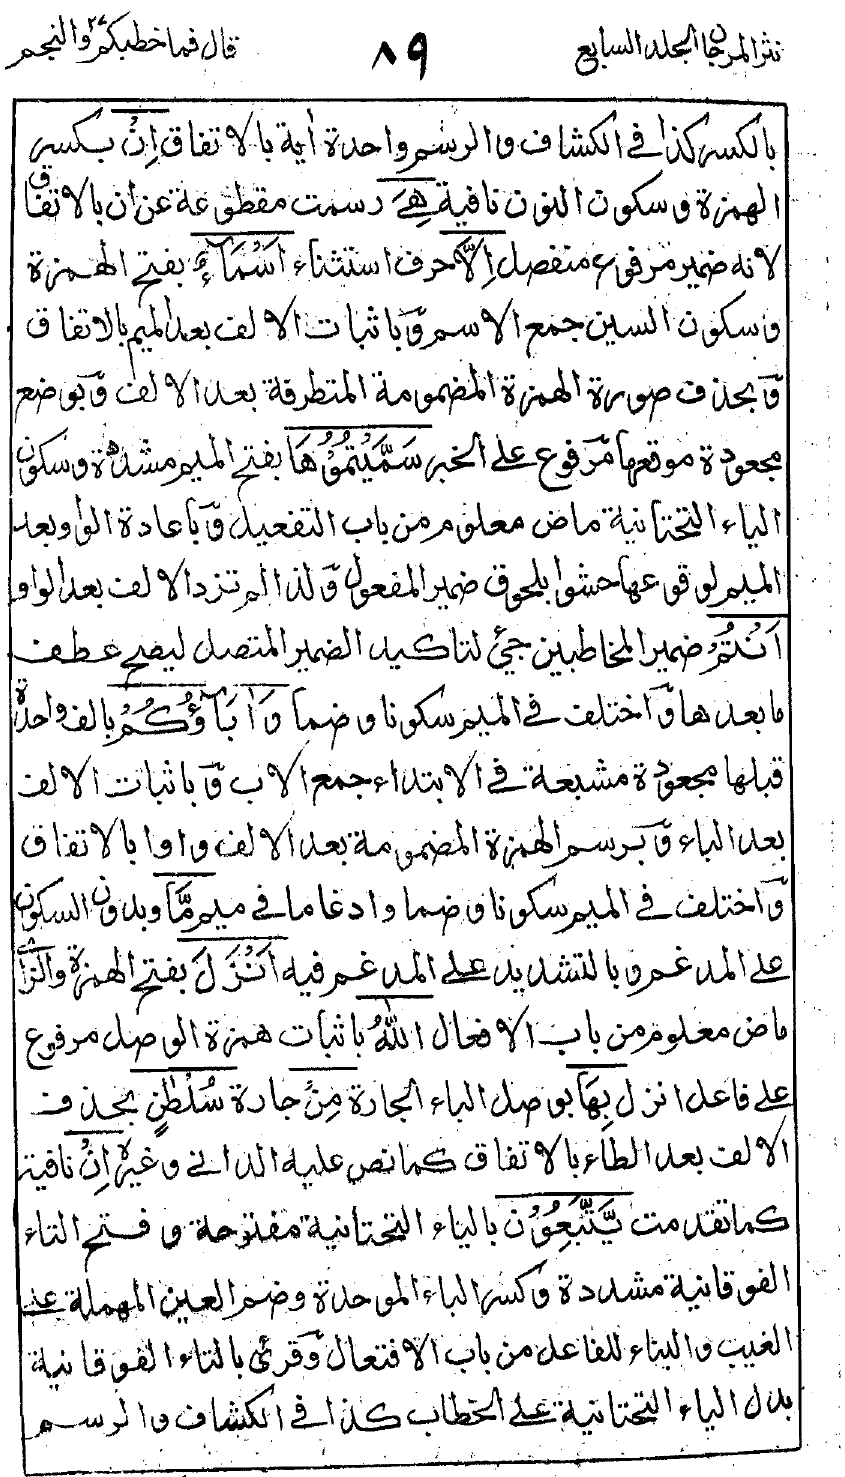 نثر المرجان الجلد السابع
٨٩
قال فما خطبكم ٢٧ والنجم
بالكسر كذا فى الكشاف والرسم واحدة أية بالاتفاق اِنْ بكسر
الهمزة وسكون النون نافية هِيَ رسمت مقطوعة عن ان بالاتفاق
لانه ضمير مرفوع منفصل اِلَّا حرف استثناء اَسْمَآءٌ بفتح الهمزة
وسكون السين جمع الاسم وٓباثبات الالف بعد الميم بالاتفاق
وٓبحذف صورة الهمزة المضمومة المتطرفة بعد الالف وٓبوضع
مجعودة موقعها مرفوع على الخبر سَمَّيْتُمُوْهَا بفتح الميم مشددة وسكون
الياء التحتانية ماض معلوم من باب التفعيل وٓباعادة الواو بعد
الميم لوقوعها حشوا بلحوق ضمير المفعول وٓلذا لم تزد الالف بعد الواو
اَنْتُمْ ضمير المخاطبين جيئ لتاكيد الضمير المتصل ليصح عطف
ما بعدها وٓاختلف فى الميم سكونا وضما وَاٰبَآؤُكُمْ بالف واحدة
قبلها مجعودة مشبعة فى الابتداء جمع الاب وٓباثبات الالف
بعد الباء وٓبرسم الهمزة المضمومة بعد الالف واوا بالاتفاق
وٓاختلف فى الميم سكونا وضما وادغاما فى ميم مَّا وبدون السكون
على المدغم وبالتشديد على المدغم فيه اَنْزَلَ بفتح الهمزة والزاى
ماض معلوم من باب الافعال اللّٰهُ باثبات همزة الوصل مرفوع
على فاعل انزل بِهَا بوصل الباء الجارة مِنْ جارة سُلْطٰنٍ بحذف
الالف بعد الطاء بالاتفاق كما نص عليه الدانى وغيره اِنْ نافية
كما تقدمت يَّتَّبِعُوْنَ بالياء التحتانية مفتوحة وفتح التاء
الفوقانية مشددة وٓكسر الباء الموحدة وضم العين المهملة على
الغيب والبناء للفاعل من باب الافتعال وٓقرئ بالتاء الفوقانية
بدل الياء التحتانية على الخطاب كذا فى الكشاف والرسم